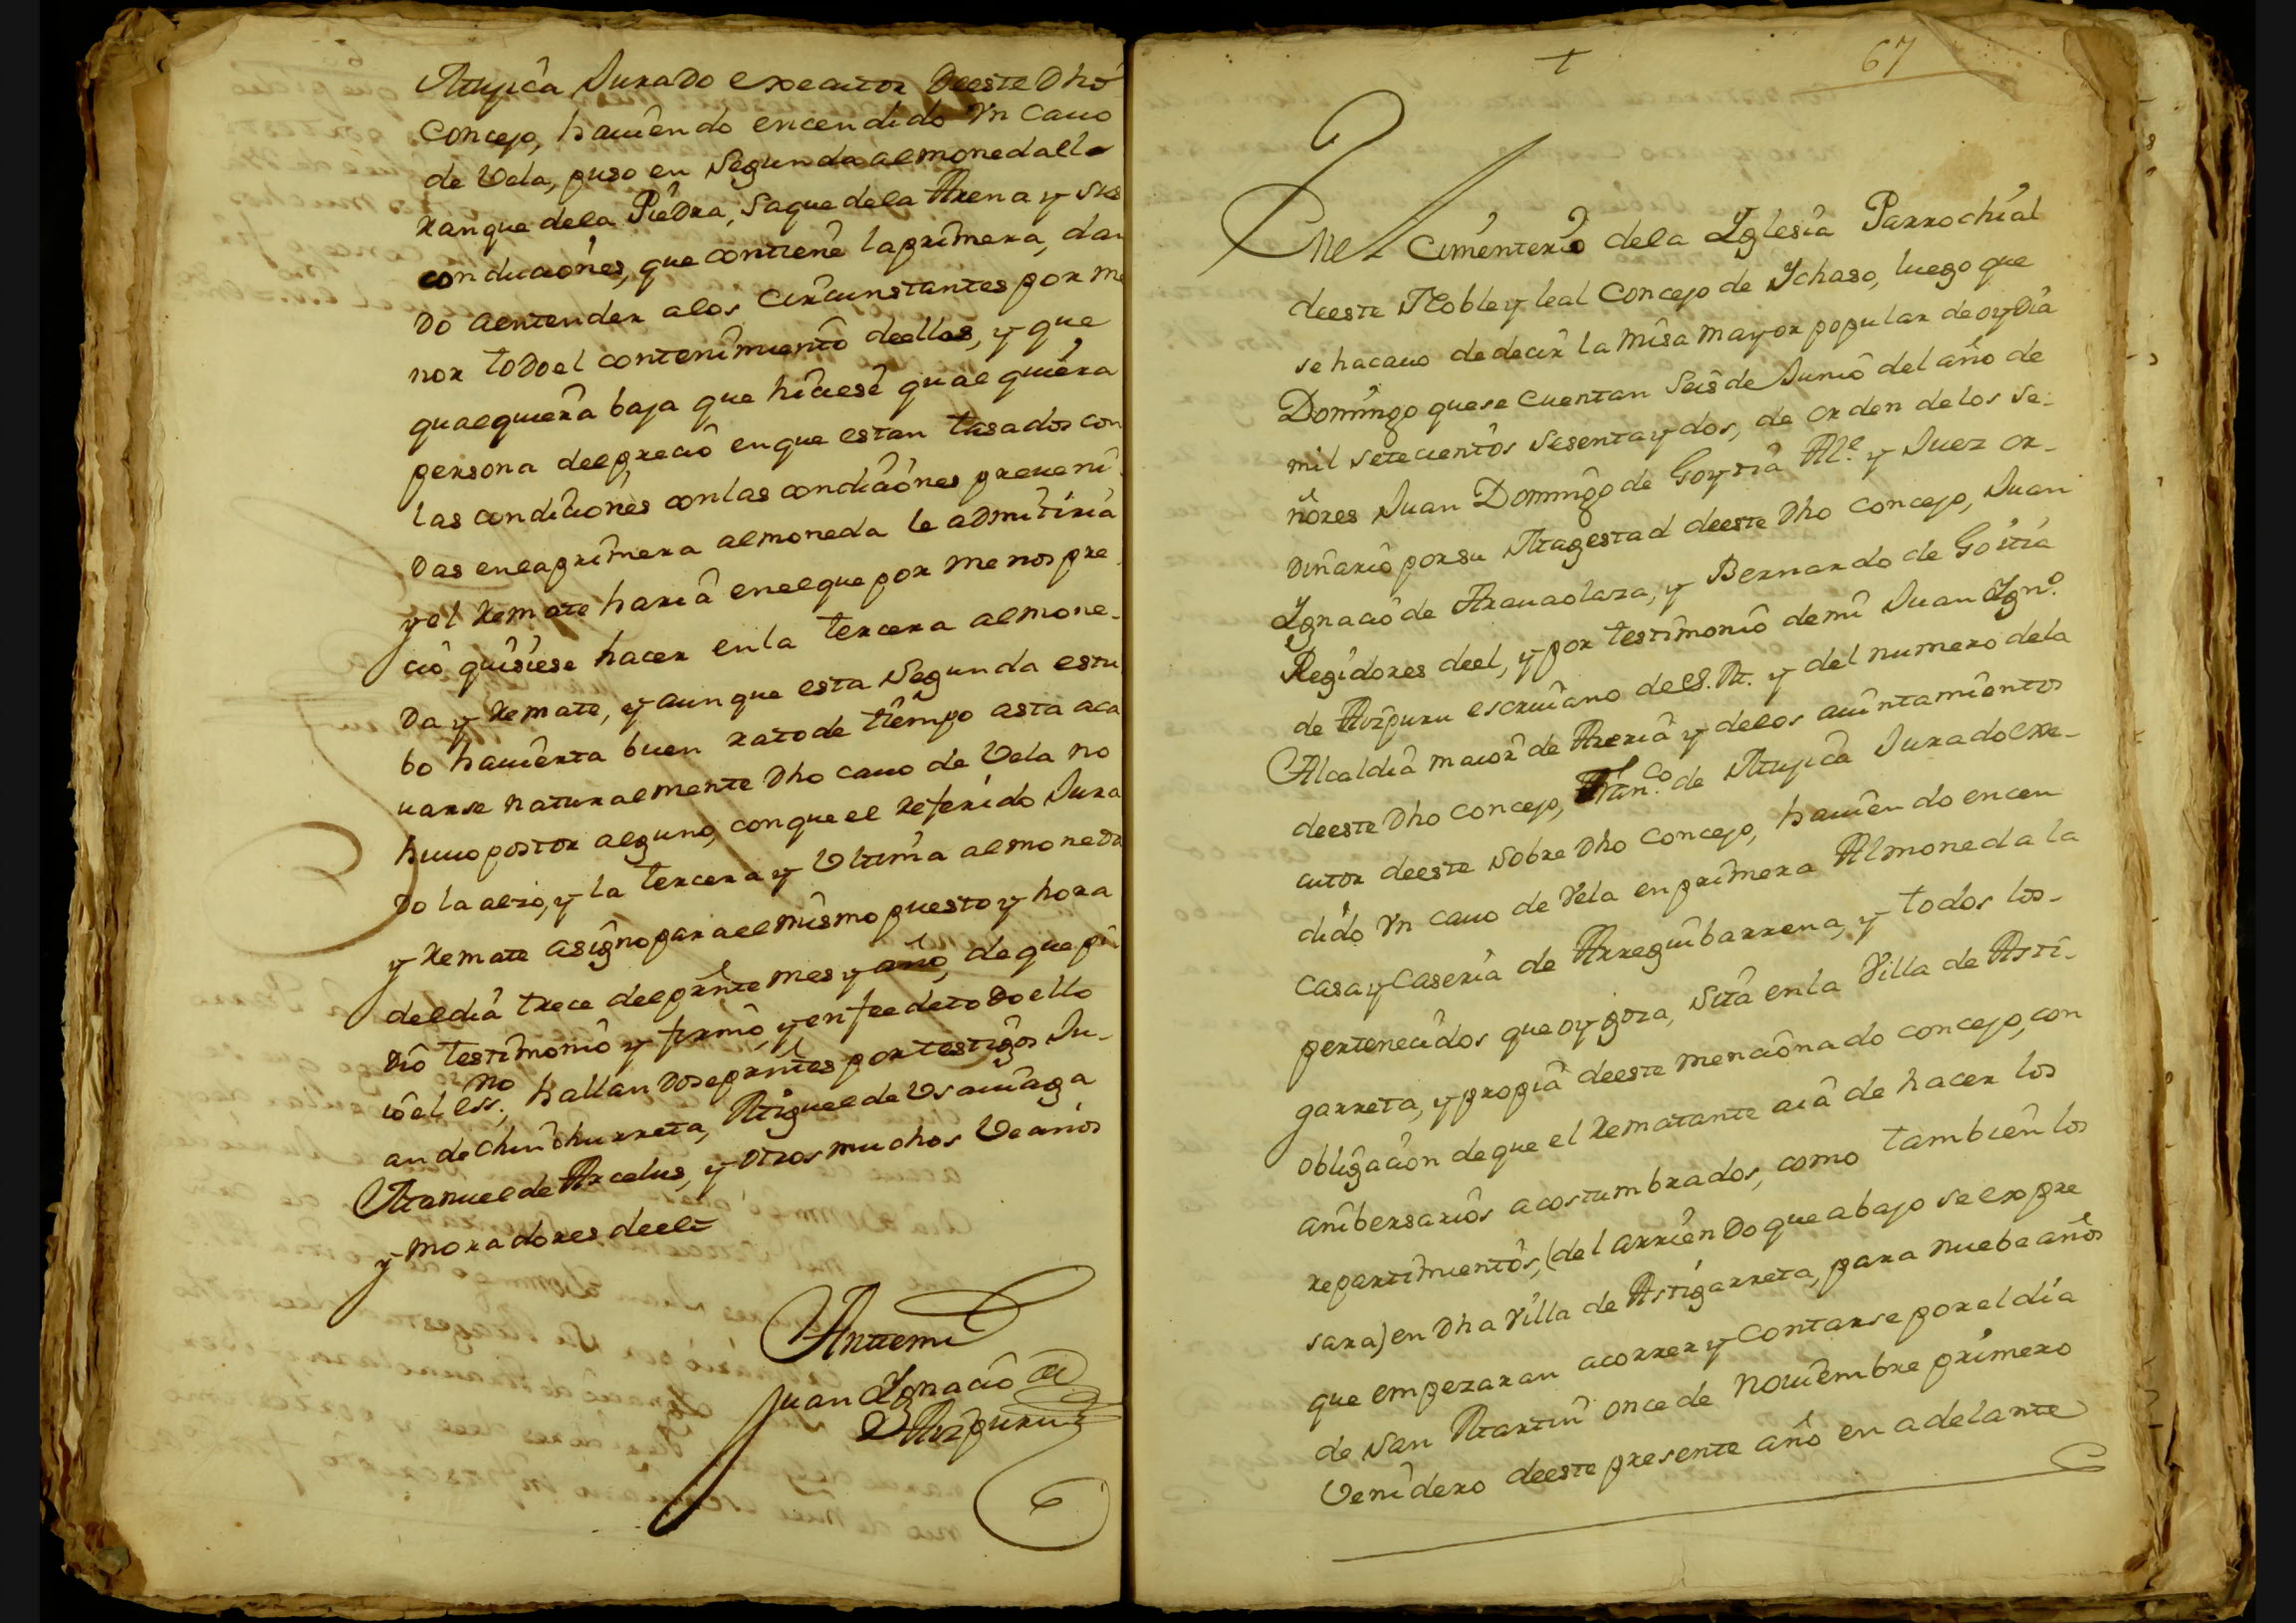 Muxica Jurado executor deeste Dho
Concejo, hauiendo encendido Vn Cauo
de Vela, puso en Segunda almonedalla
ranque dela Piedra, Saque dela Arena y sus
condiciones, que contiene la primera, dan
Do aentender alos Circunstantes por me
nor toDoel contenimiento deellas, y que
qualquiera baja que hiciese qualquiera
persona deel precio enque estan tasados con
las condiciones con las condiciones preueni
Das enlaprimera almoneda le aDmitiria
y el Remate haria enelque por menos pre
cio quisiese hacer en la tercera almone-
Da y Remate, y aunque esta Segunda estu
bo hauierta buen rato de tiempo asta aca
uarse naturalmente Dho cauo de Vela no
huuo postor alguno, conque el Referido Jura
Do la alzo, y la tercera y Vltima almoneDa
y Remate asigno para el mismo puesto y hora
deel dia trece deel prnte mes y año, de que pi
Dio testimonio y firmo, y en fee deto Do ello
io el Essno, hallanDose prntes por testigos Ju-
an de Chinchurreta, Miguel de Vsauiaga
Manuel de Arcelus, y otros muchos Vecinos
y moradores deel=
Antemi
Juan Ignacio de
Aizpuru
+
67
Enel Cimenterio dela Iglesia Parrochial
deeste Noble y leal Concejo de Ichaso, luego que
se hacauo de decir la Misa Mayor popular de oy Dia
Domingo que se Cuentan Seis de Junio del año de
mil setecientos sesenta y dos, de orden delos Se-
ñores Juan Domingo de Goytia Ale. y Juez or-
Dinario por su Magestad deeste Dho Concejo, Juan
Ignacio de Araualaza, y Bernardo de Goitia
Regidores deel, y por testimonio de mi Juan Ignº.
de Aizpuru escriuano deeS. M. y del numero dela
Alcaldia maior de Areria y delos aiuntamientos
deeste Dho Concejo, Franco. de Muxica Jurado exe-
cutor deeste Sobre Dho Concejo, hauiendo encen
dido Vn cauo de Vela en primera Almoneda la
Casa y Caseria de Arreguibarrena, y todos los-
pertenecidos que oy goza, Sita en la Villa de Asti-
garreta, y propia deeste mencionado concejo, con
obligacion de que el Rematante aia de hacer los
anibersarios acostumbrados, como tambien los
repartimientos, (del arrienDo que abajo se expre
sara) en Dha Villa de Astigarreta, para nuebe años
que empezaran acorrer y Contarse por el dia
de San Martin once de nouiembre primero
Venidero deeste presente año en adelante